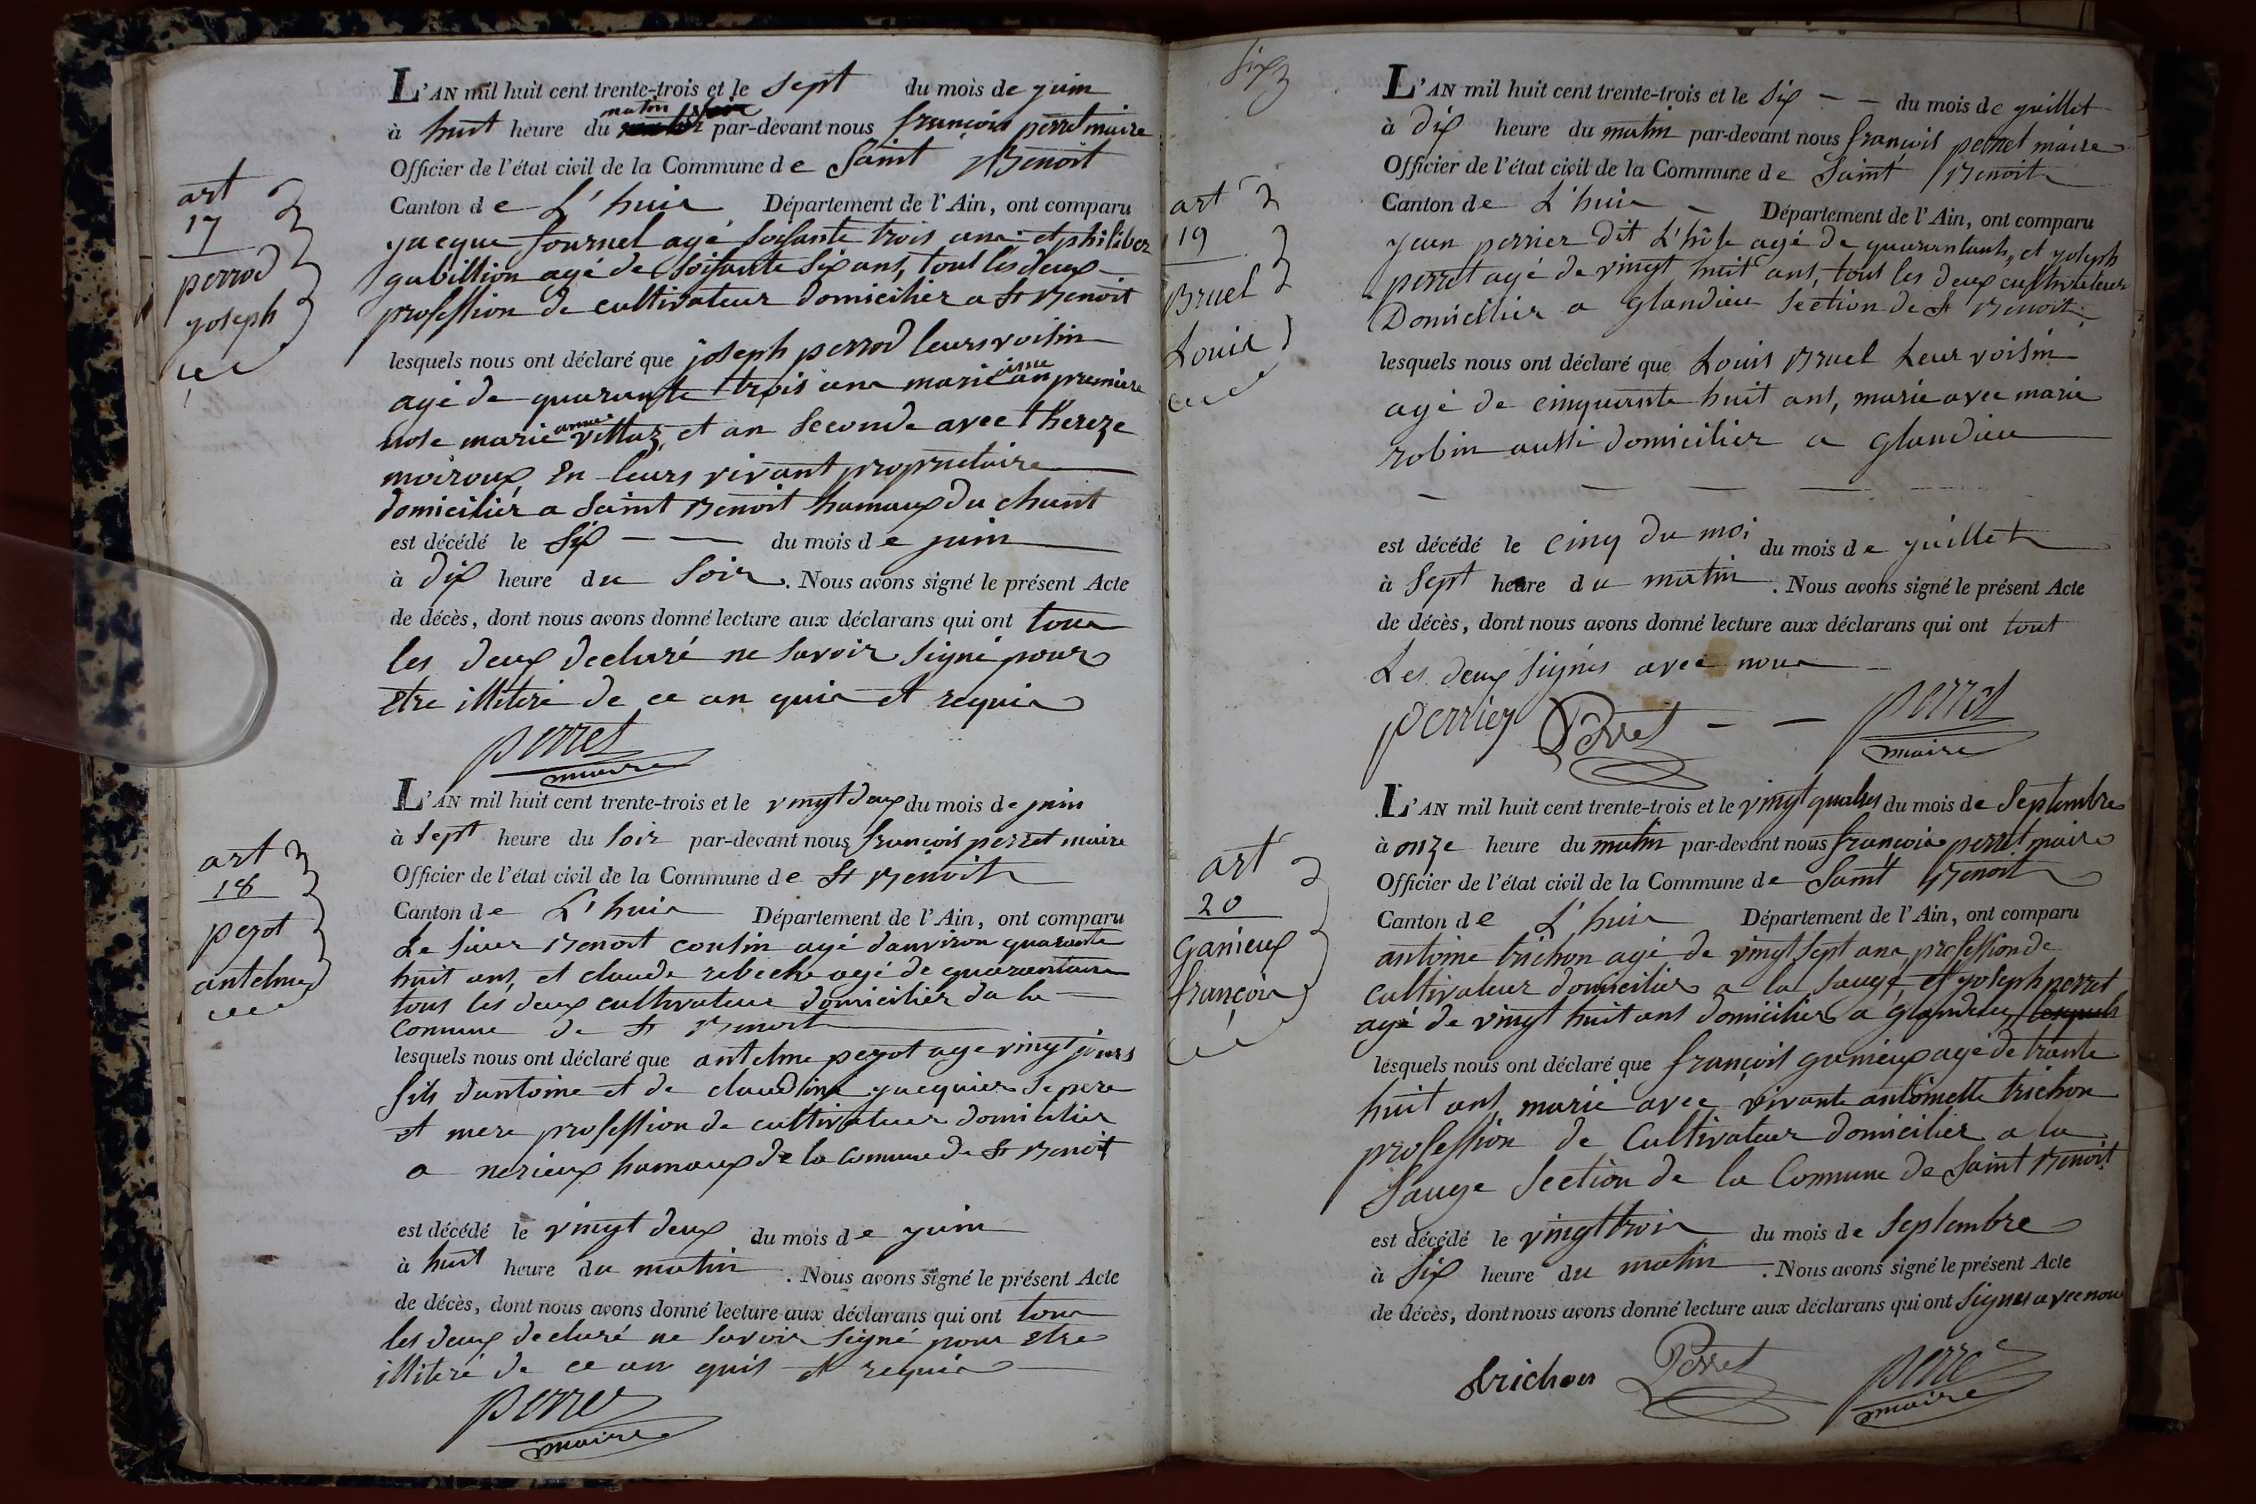 art
17
perrod
joseph
L'AN mil huit cent trente-trois et le sept du mois de juin
à huit heure du matin par-devant nous françois perret maire
Officier de l'état civil de la Commune de Saint Benoit
Canton de L'huis Département de l'Ain, ont comparu
jacque fournel agé soissante trois ans et philiber
gabillion agé de soissante six ans, tout les deux
profession de cultivateur domicilier a St Benoit
lesquels nous ont déclaré que joseph perrod leurs voisin
agé de quarante trois ans marié an premiere
nose marie anne villaz et an seconde avec thereze
moiroux En leurs vivant proprietaire
domicilier a Saint Benoit hamaux du chant
est décédé le six du mois de juin
à dix heure du soir. Nous avons signé le présent Acte
de décès, dont nous avons donné lecture aux déclarans qui ont tous
les deux declaré ne savoir signé pour
etre illiteré de ce an quis et requis
perret
maire
art
18
pezot
antelme
L'AN mil huit cent trente-trois et le vingt deux du mois de juin
à sept heure du soir par-devant nous françois perret maire
Officier de l'état civil de la Commune de St Benoit
Canton de L'huis Département de l'Ain, ont comparu
Le sieur Benoit consin agé d'anviron quarante
huit ans, et claude rebeche agé de quarantans
tous les deux cultivateur domicilier da la
Comune de St Benoit
lesquels nous ont déclaré que antelme pezot age vingt jours
fils dantoine et de claudine jacquier se pere
et mere profession de cultivateur domicilier
a nerieux hamaux de la Comune de St Benoit
est décédé le vingt deux du mois de juin
à huit heure du matin. Nous avons signé le présent Acte
de décès, dont nous avons donné lecture aux déclarans qui ont tous
les deux declaré ne savoir signé pour etre
illiteré de ce an quis et requis
perret
maire
six
art
19
Bruel
Louis
L'AN mil huit cent trente-trois et le six du mois de juillet
à dix heure du matin par-devant nous françois perret maire
Officier de l'état civil de la Commune de Saint Benoit
Canton de L'huis Département de l'Ain, ont comparu
jean perrier dit L'hôte agé de quarantans, et joseph
perret agé de vingt huit ans, tout les deux cultivateur
Domicilier a Glandieu section de St Benoit
lesquels nous ont déclaré que Louis Bruel Leur voisin
agé de cinquante huit ans, marié avec marie
robin aussi domicilier a Glandieu
est décédé le cinq du moi du mois de juillet
à sept heure du matin. Nous avons signé le présent Acte
de décès, dont nous avons donné lecture aux déclarans qui ont tout
Les deux signés avec nous
perrier Perret perret
maire
art
20
Ganieux
françois
L'AN mil huit cent trente-trois et le vingt quatres du mois de Septembre
à onze heure du matin par-devant nous françois perret maire
Officier de l'état civil de la Commune de Saint Benoit
Canton de L'huis Département de l'Ain, ont comparu
antoine trichon agé de vingt sept ans profession de
cultivateur domicilier a la sauge, et joseph perret
agé de vingt huit ans domicilier a glandieu lesquels
lesquels nous ont déclaré que françois ganieux agé de trante
huit ans marié avec vivante antoinette trichon
profession de Cultivateur domicilier a la
Sauge Section de la Commune de Saint Benoit
est décédé le vingt trois du mois de Septembre
à six heure du matin. Nous avons signé le présent Acte
de décès, dont nous avons donné lecture aux déclarans qui ont signés avec nous
trichon Perret perret
maire